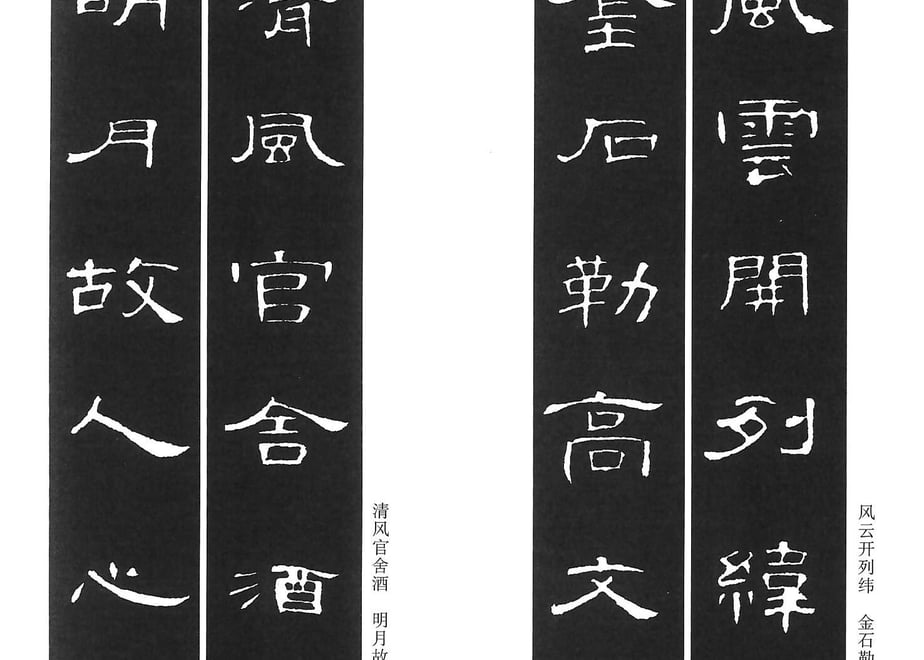 風雲開列緯
金石勒高文
风云开列纬 金石勒
清風官舍酒
明月故人心
清风官舍酒 明月故